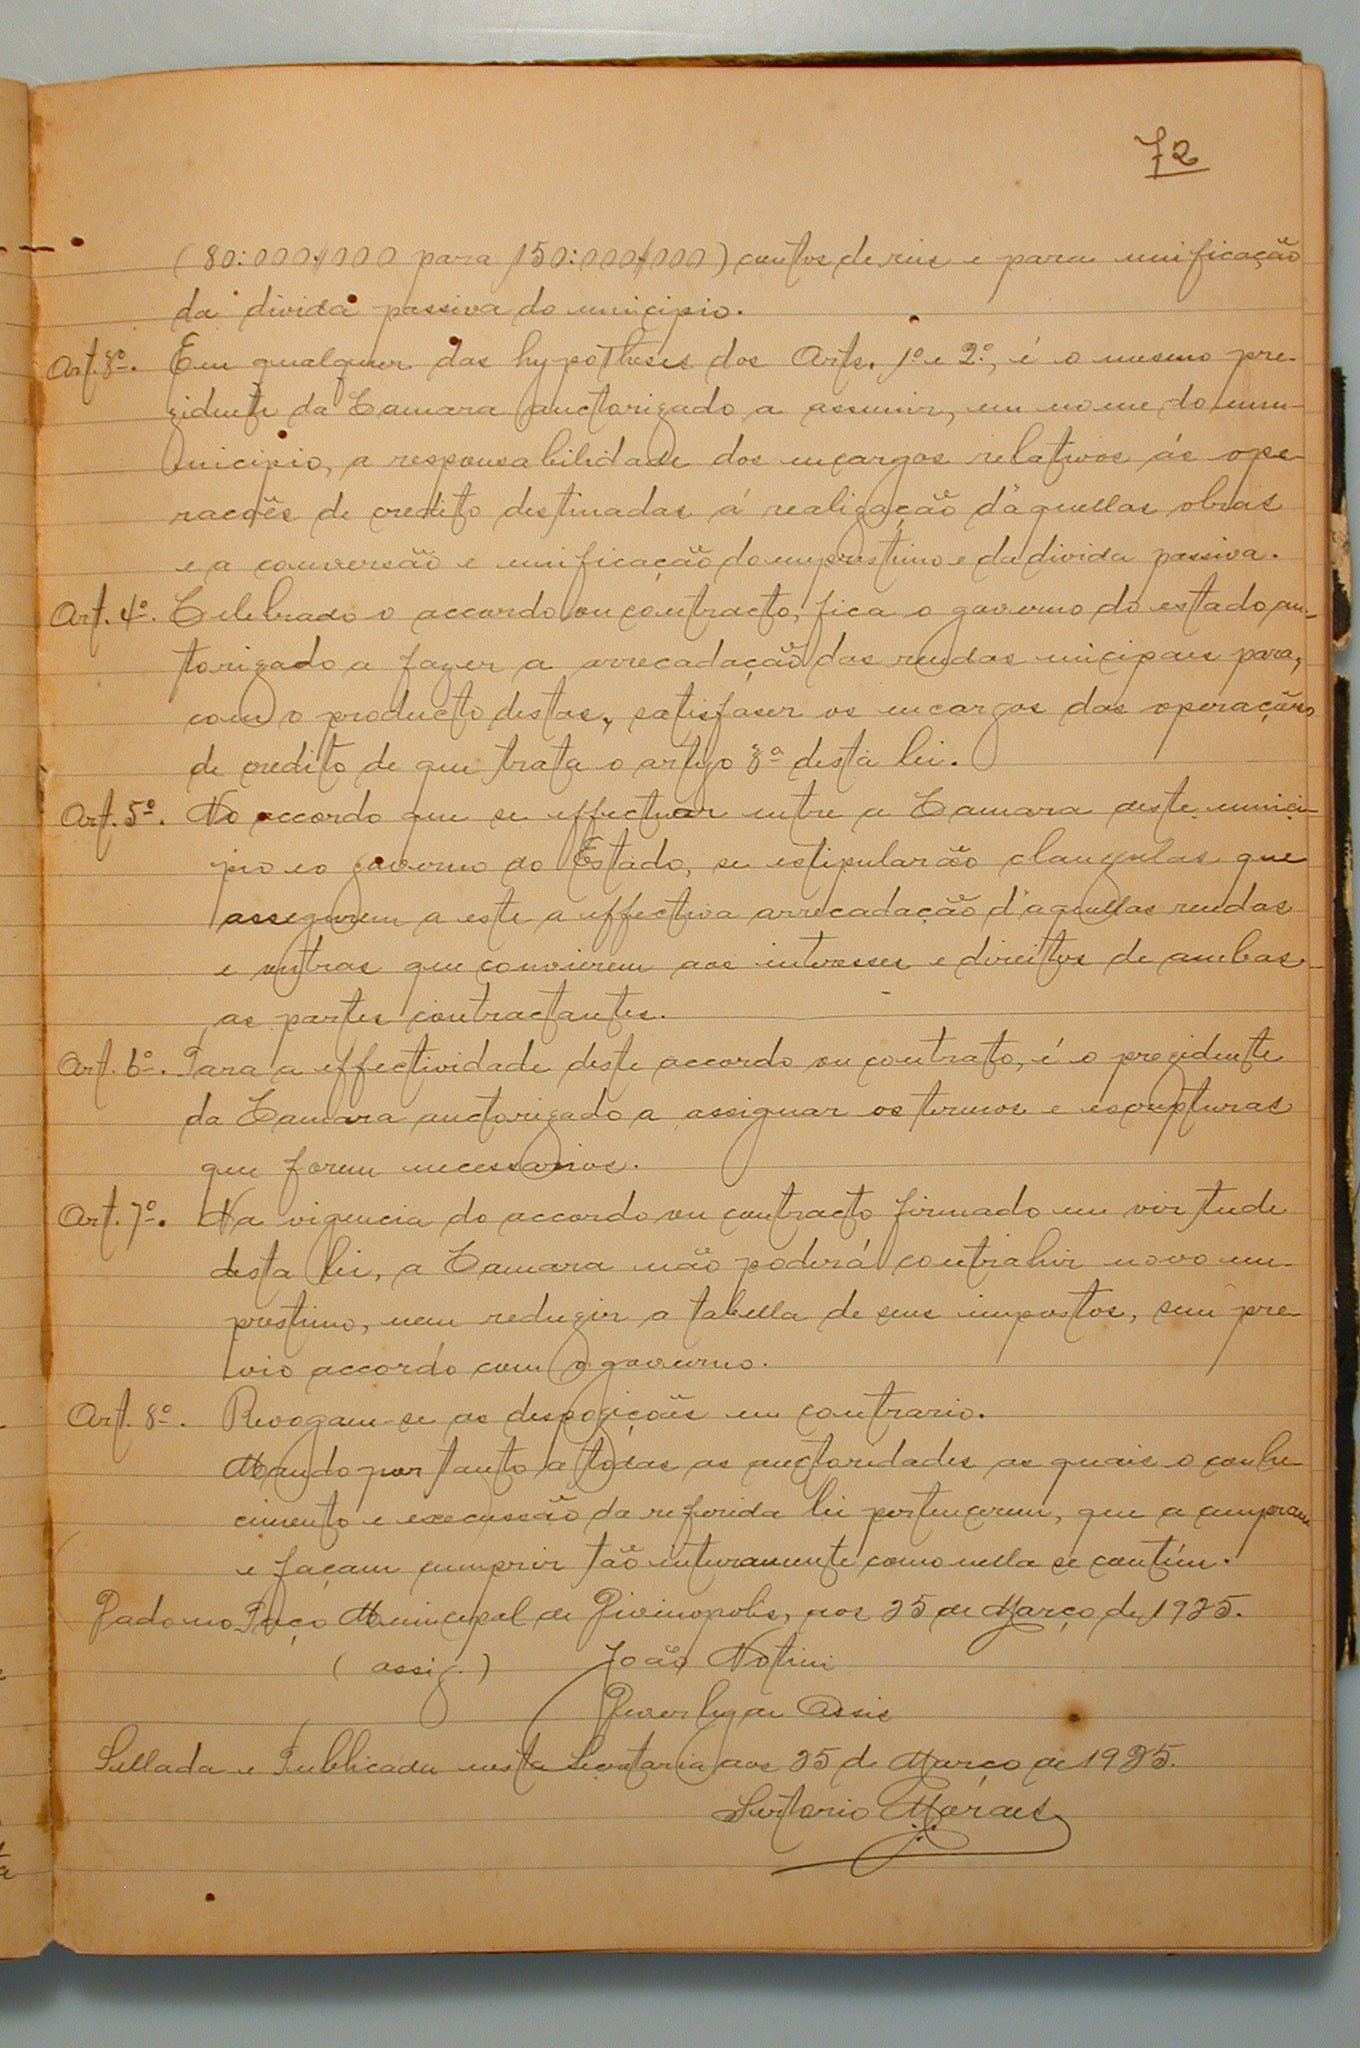 72
(80:000$000 para 150:000$000) contos de reis e para unificação
da divida passiva do municipio.
Art. 3º. Em qualquer das hypotheses dos Arts. 1º e 2º, é o mesmo pre-
zidente da Camara auctorizado a assumir, em nome do mu-
nicipio, a responsabilidade dos encargos relativos ás ope-
racões de credito destinadas á realização d'aquellas obras
e a conversão e unificação do emprestimo e da divida passiva.
Art. 4º. Celebrado o accordo ou contracto, fica o governo do estado au-
torizado a fazer a arrecadação das rendas micipais para,
com o producto destas, satisfaser os encargos das operações
de credito de que trata o artigo 3º desta lei.
Art. 5º. No accordo que se effectuar entre a Camara deste munici-
pio e o governo do Estado, se estipularão clausulas que
assegurem a este a effectiva arrecadação d'aquellas rendas
e outras que convierem aos interesses e direitos de ambas
as partes contractantes.
Art. 6º. Para a effectividade deste accordo ou contrato, é o prezidente
da Camara auctorizado a assignar os termos e escripturas
que forem necessarios.
Art. 7º. Na vigencia do accordo ou contracto firmado em virtude
desta lei, a Camara não poderá contrahir novo em-
prestimo, nem reduzir a tabella de seus impostos, sem pre-
vio accordo com o governo.
Art. 8º. Revogam-se as despozições em contrario.
Mando portanto a todas as auctoridades as quais o conhe-
cimento e execussão da referida lei pertencerem, que a cumpram
e façam cumprir tão inteiramente como nella se contém.
Dado no Paço Municipal de Divinopolis, aos 25 de Março de 1925.
(assig.) João Notini
Assis
Sellada e Publicada nesta Secretaria aos 25 de Março de 1925.
Sertorio Moraes